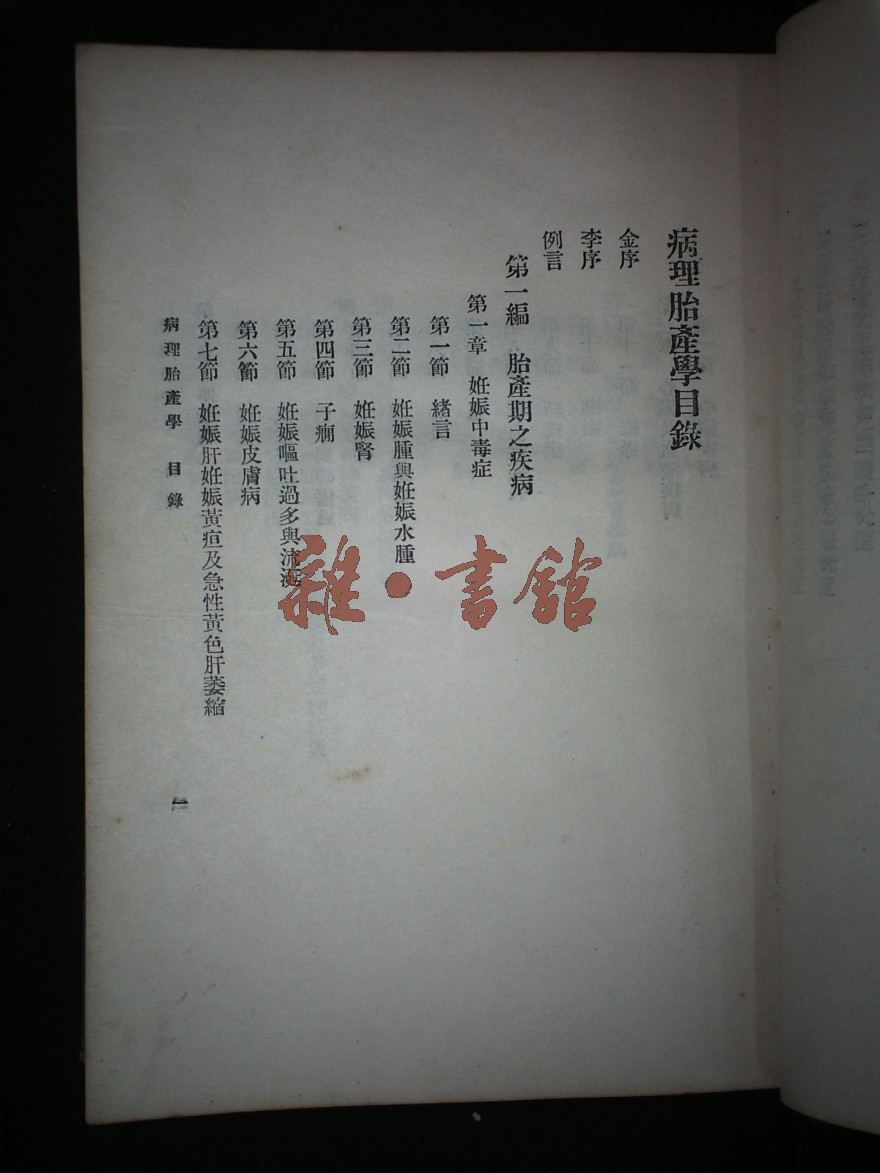 病理胎產學目錄
金序
李序
例言
第一編 胎產期之疾病
第一章 妊娠中毒症
第一節 緒言
第二節 妊娠腫與妊娠水腫
第三節 妊娠腎
第四節 子癇
第五節 妊娠嘔吐過多與流涎
第六節 妊娠皮膚病
第七節 妊娠肝妊娠黃疸及急性黃色肝萎縮
病理胎產學 目錄
雜·書館